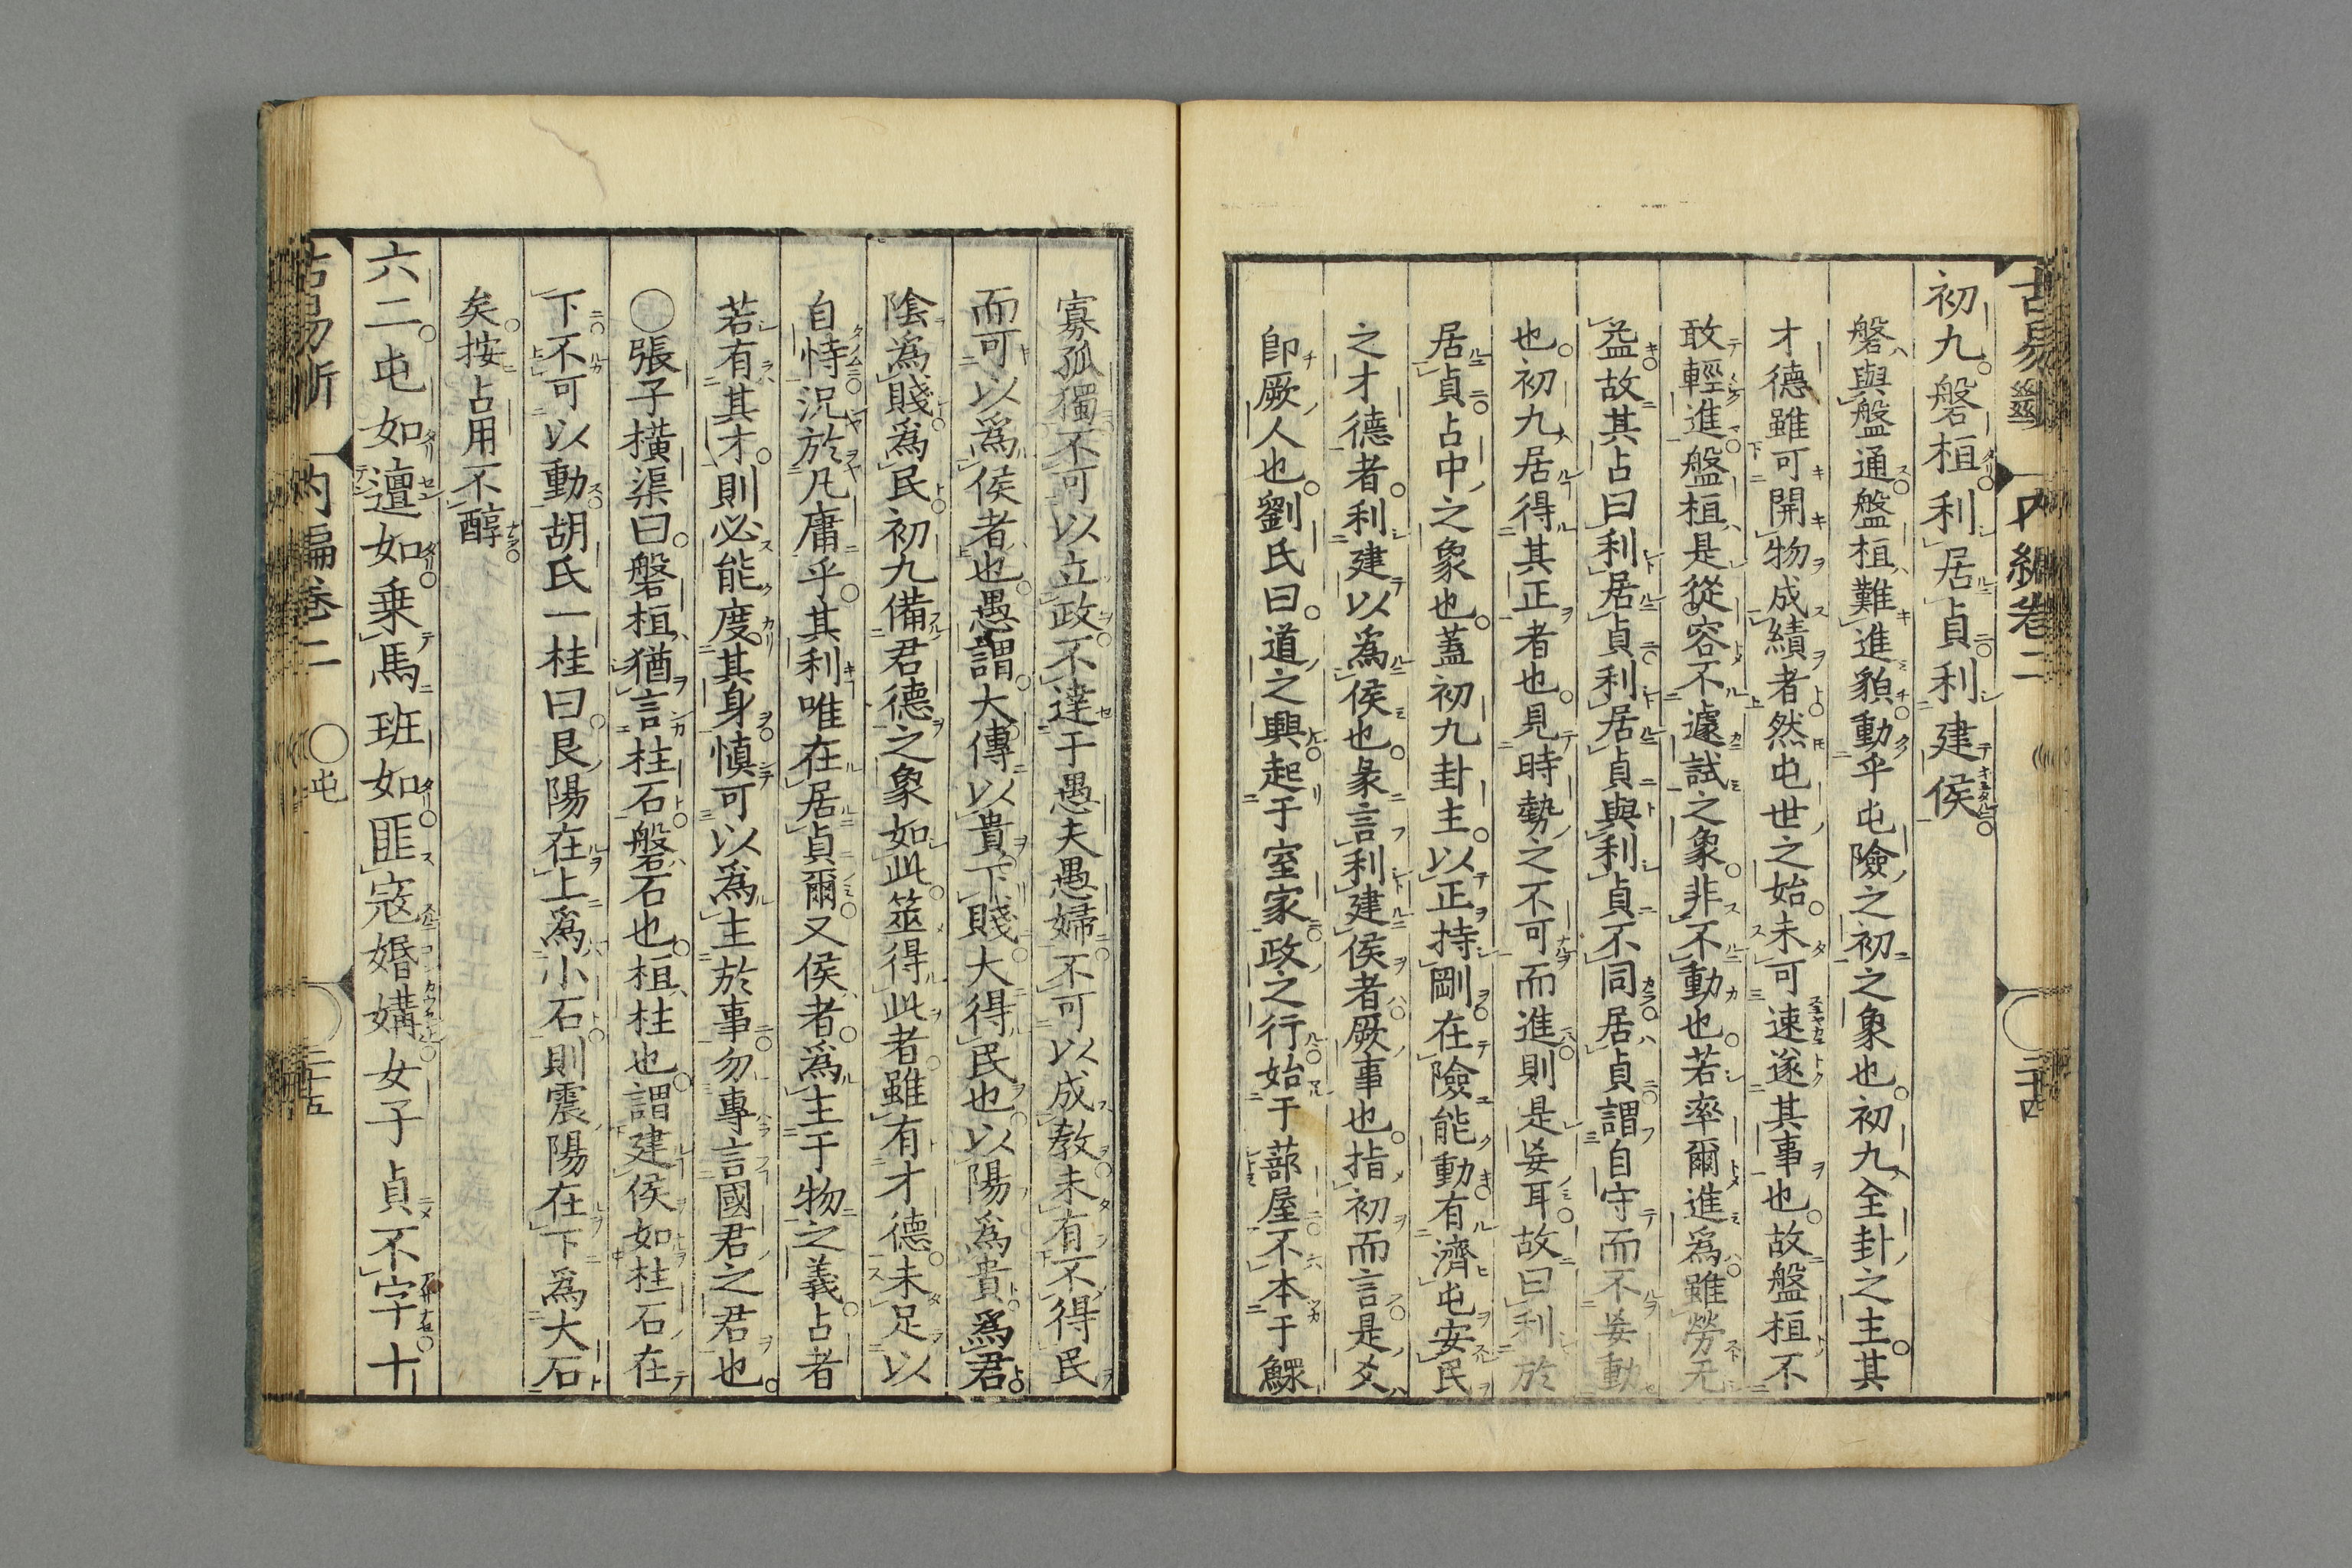 古易斷 内編卷二 二十四
初九。磐桓。利居貞。利建侯。
磐與盤通。盤桓。難進貌。動乎屯險之初之象也。初九。全卦之主。其
才德雖可開物成績者。然屯世之始。未可速遂其事也。故盤桓不
敢輕進。盤桓。是從容不遽試之象。非不動也。若率爾進爲。雖勞无
益。故其占曰利居貞。利居貞與利貞不同。居貞。謂自守而不妄動
也。初九。居得其正者也。見時勢之不可而進。則是妄耳。故曰利於
居貞。占中之象也。蓋初九卦主。以正持剛。在險能動。有濟屯安民
之才德者。利建以爲侯也。彖言利建侯者。厥事也。指初而言。是爻
卽厥人也。劉氏曰。道之興。起于室家。政之行。始于蔀屋。不本于鰥
寡孤獨。不可以立政。不達于愚夫愚婦。不可以成敎。未有不得民
而可以爲侯者也。愚謂。大傳以貴下賤。大得民也。以陽爲貴爲君。
陰爲賤爲民。初九備君德之象如此。筮得此者。雖有才德。未足以
自恃。況於凡庸乎。其利唯在居貞爾。又侯者。爲主于物之義。占者
若有其才。則必能度其身。愼可以爲主於事。勿專言國君之君也。
○張子橫渠曰。磐桓。猶言柱石。磐石也。桓。柱也。謂建侯如柱石在
下不可以動。胡氏一桂曰。艮陽在上爲小石。則震陽在下爲大石
矣。按占用不醇。
六二。屯如邅如。乗馬班如。匪寇婚媾。女子貞不字。十
古易斷 内編卷二 ○屯 二十五